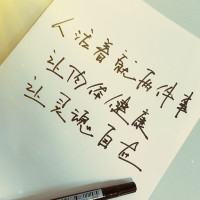 人活着就两件事
让肉体健康
让灵魂自在